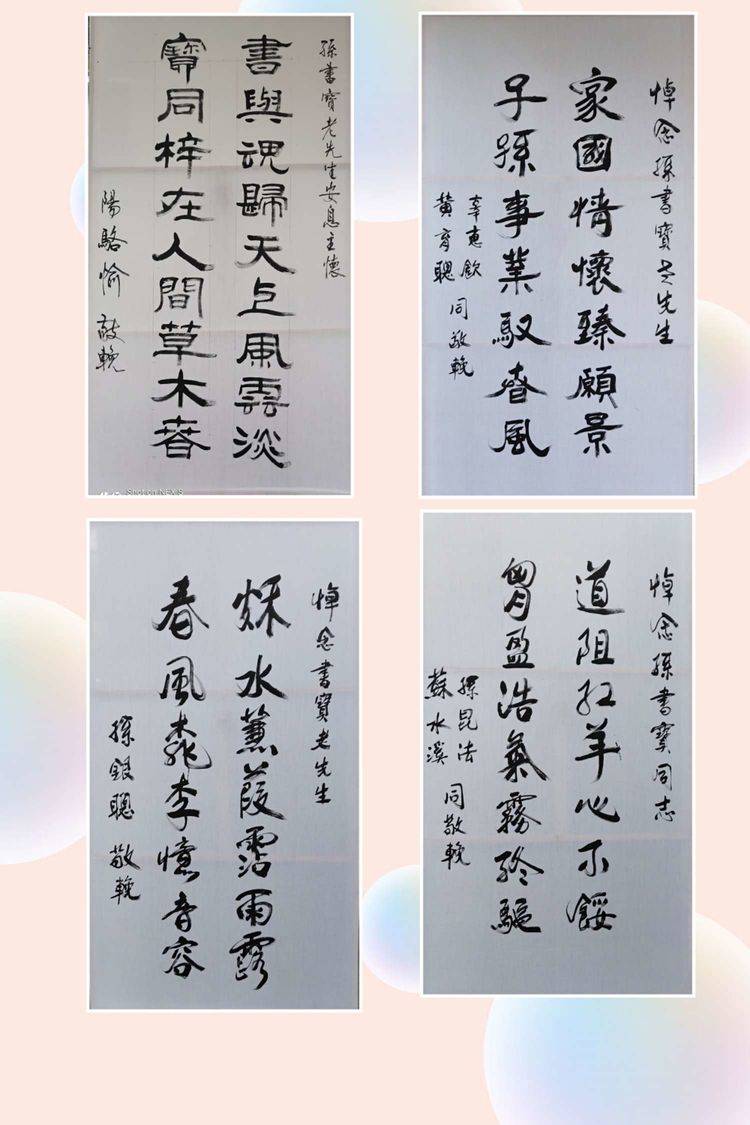 孫書寶老先生安息主懷
書與魂歸天上風雲淡
寶同梓在人間草木春
陽駱愉 敬輓
Shot on NEX S
悼念孫書寶老先生
家國情懷臻願景
子孫事業馭春風
辜惠欽
黃育聰
同敬輓
悼念書寶老先生
秌水蒹葭霑雨露
春風桃李憶音容
孫銀聰 敬輓
悼念孫書寶同志
道阻紅羊心不餒
胷盈浩氣霧終驅
孫昆法
蘇水溪
同敬輓